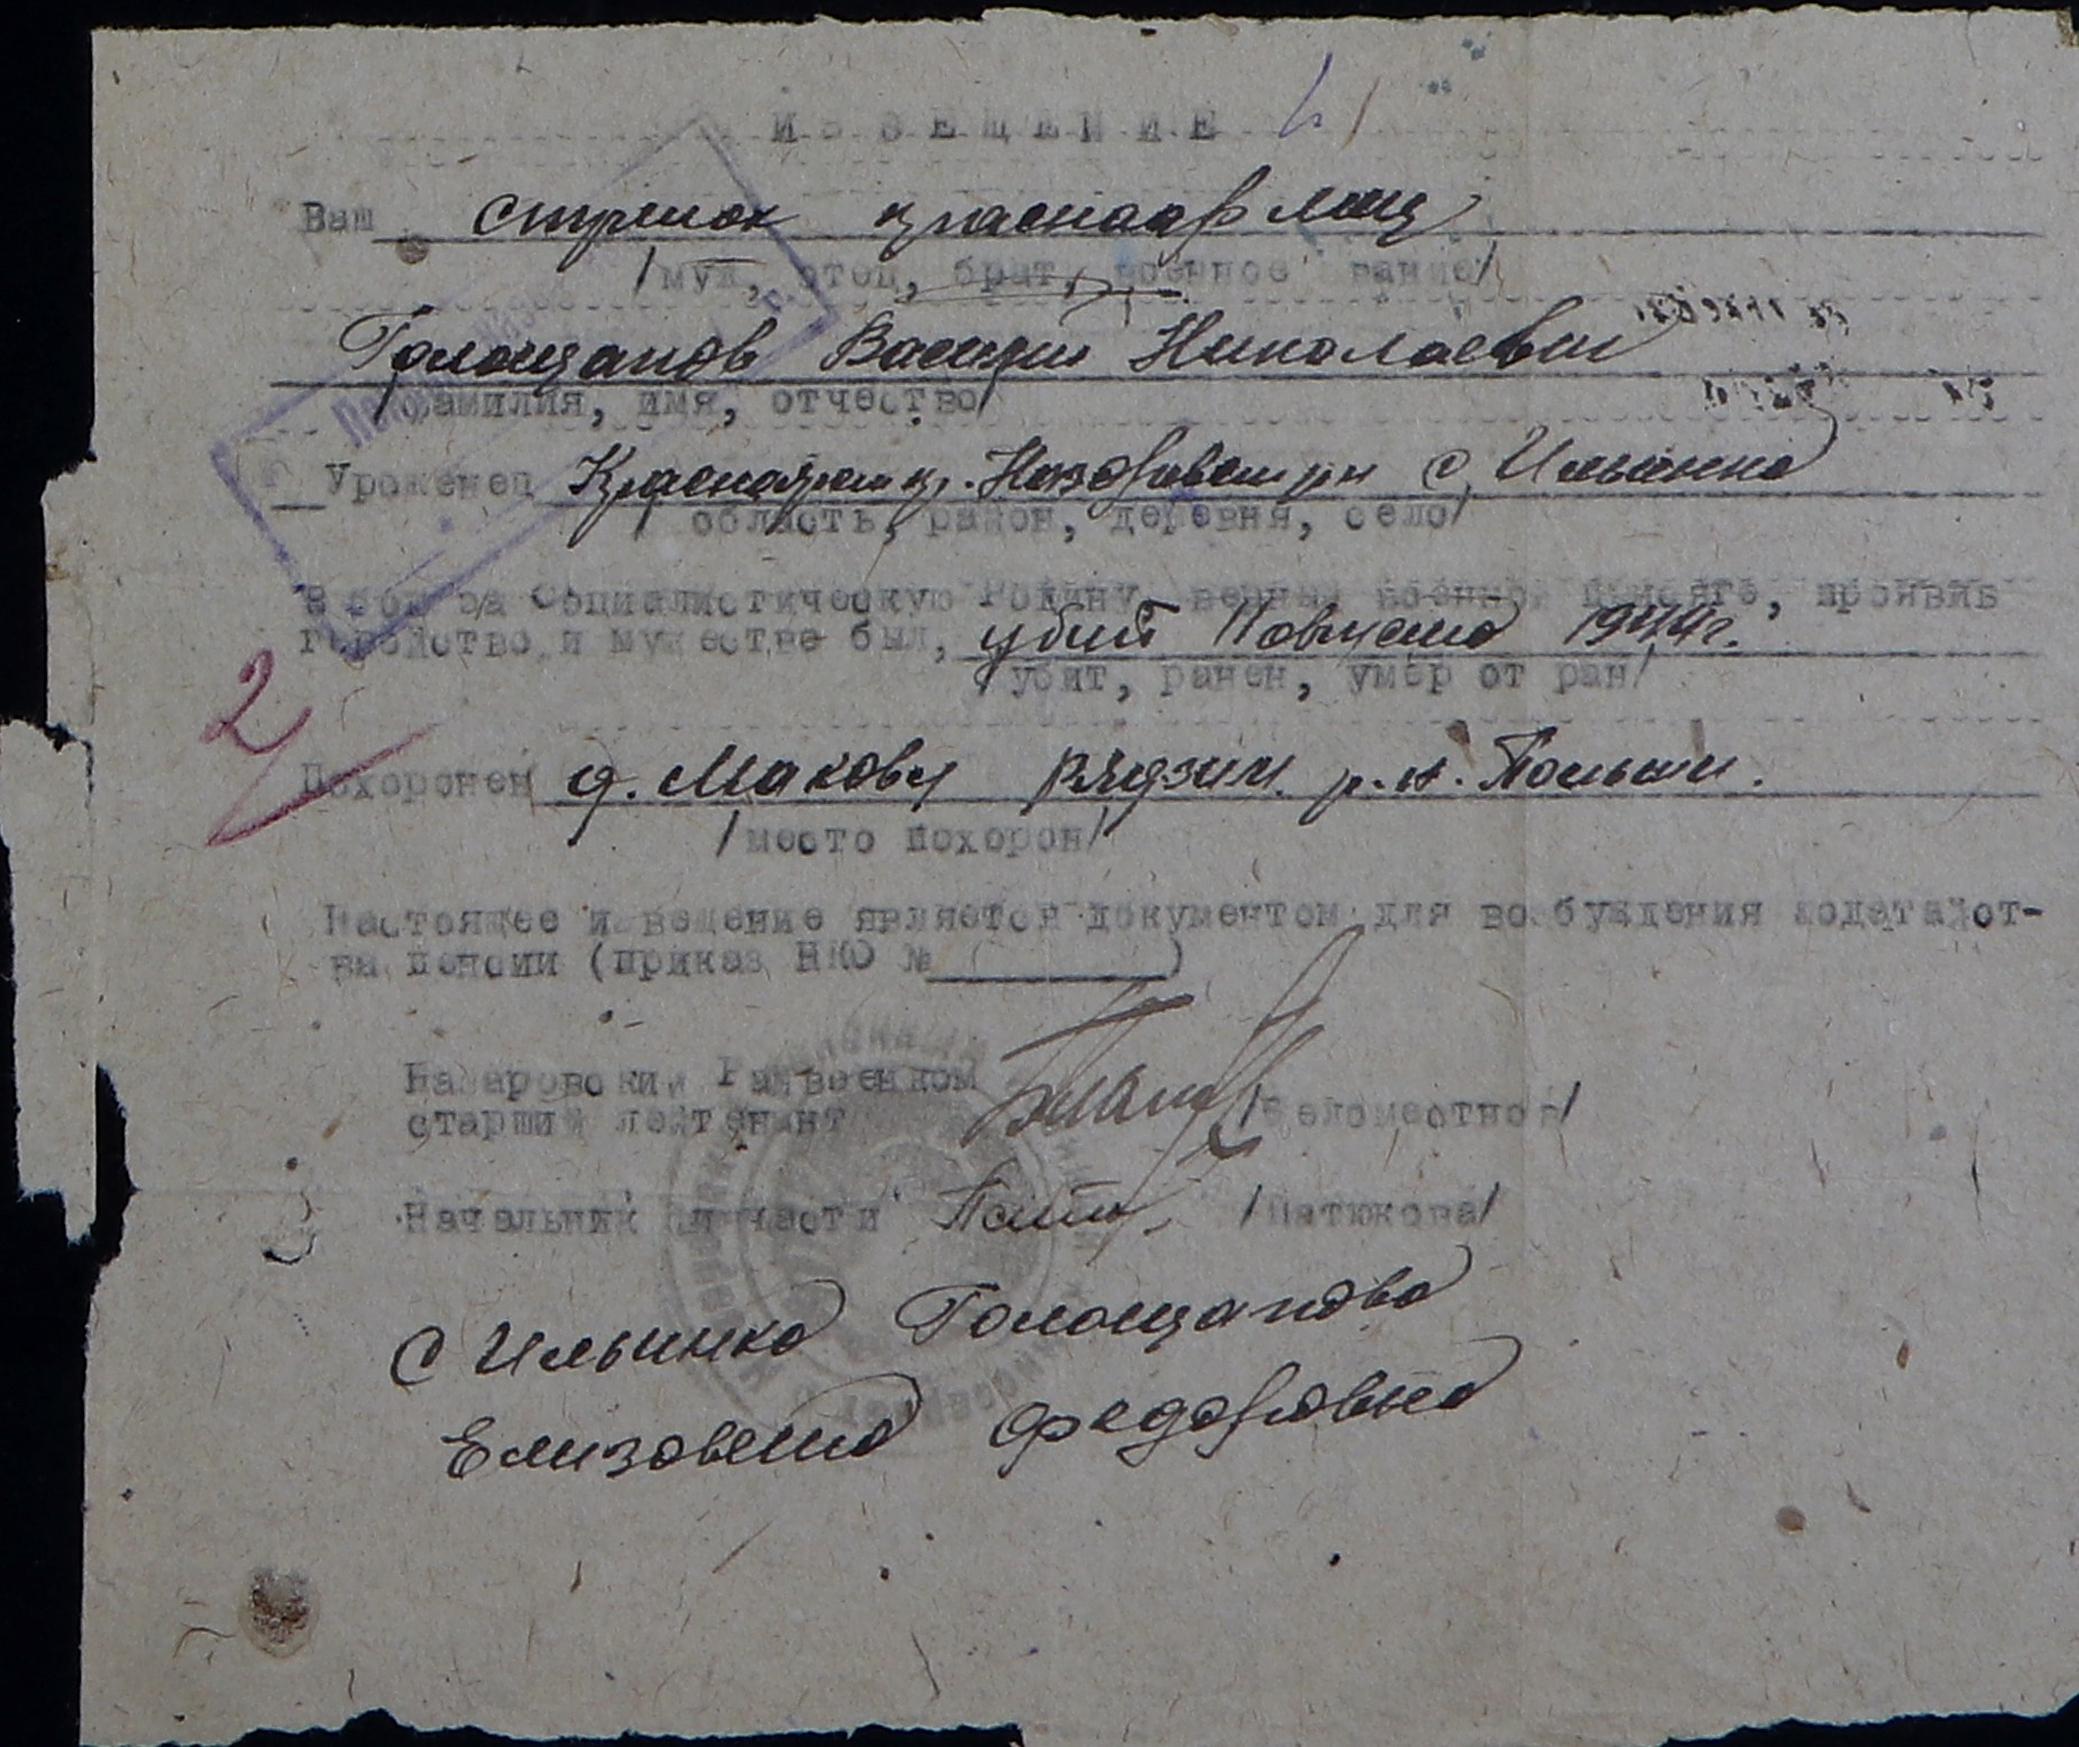 ИЗВЕЩЕНИЕ
Ваш стрелок красноармец
/муж, отец, брат, военное звание/
Голощапов Василий Николаевич
/фамилия, имя, отчество/
Уроженец Красноярск кр. Назаровским рн с Ильинка
область, район, деревня, село/
В бою за Социалистическую Родину, верный военной присяге, проявив
геройство и мужество был, убит 11 августа 1944г.
/убит, ранен, умер от ран/
2
Похоронен д. Маковы Рядзим. р.н. Польши.
/место похорон/
Настоящее извещение является документом для возбуждения ходатайст-
ва пенсии (приказ НКО №          )
Назаровский Райвоенком
старший лейтенант /Беломестнов/
Начальник части /Патюкова/
с Ильинка Голощапова
Елизовета Федоровна